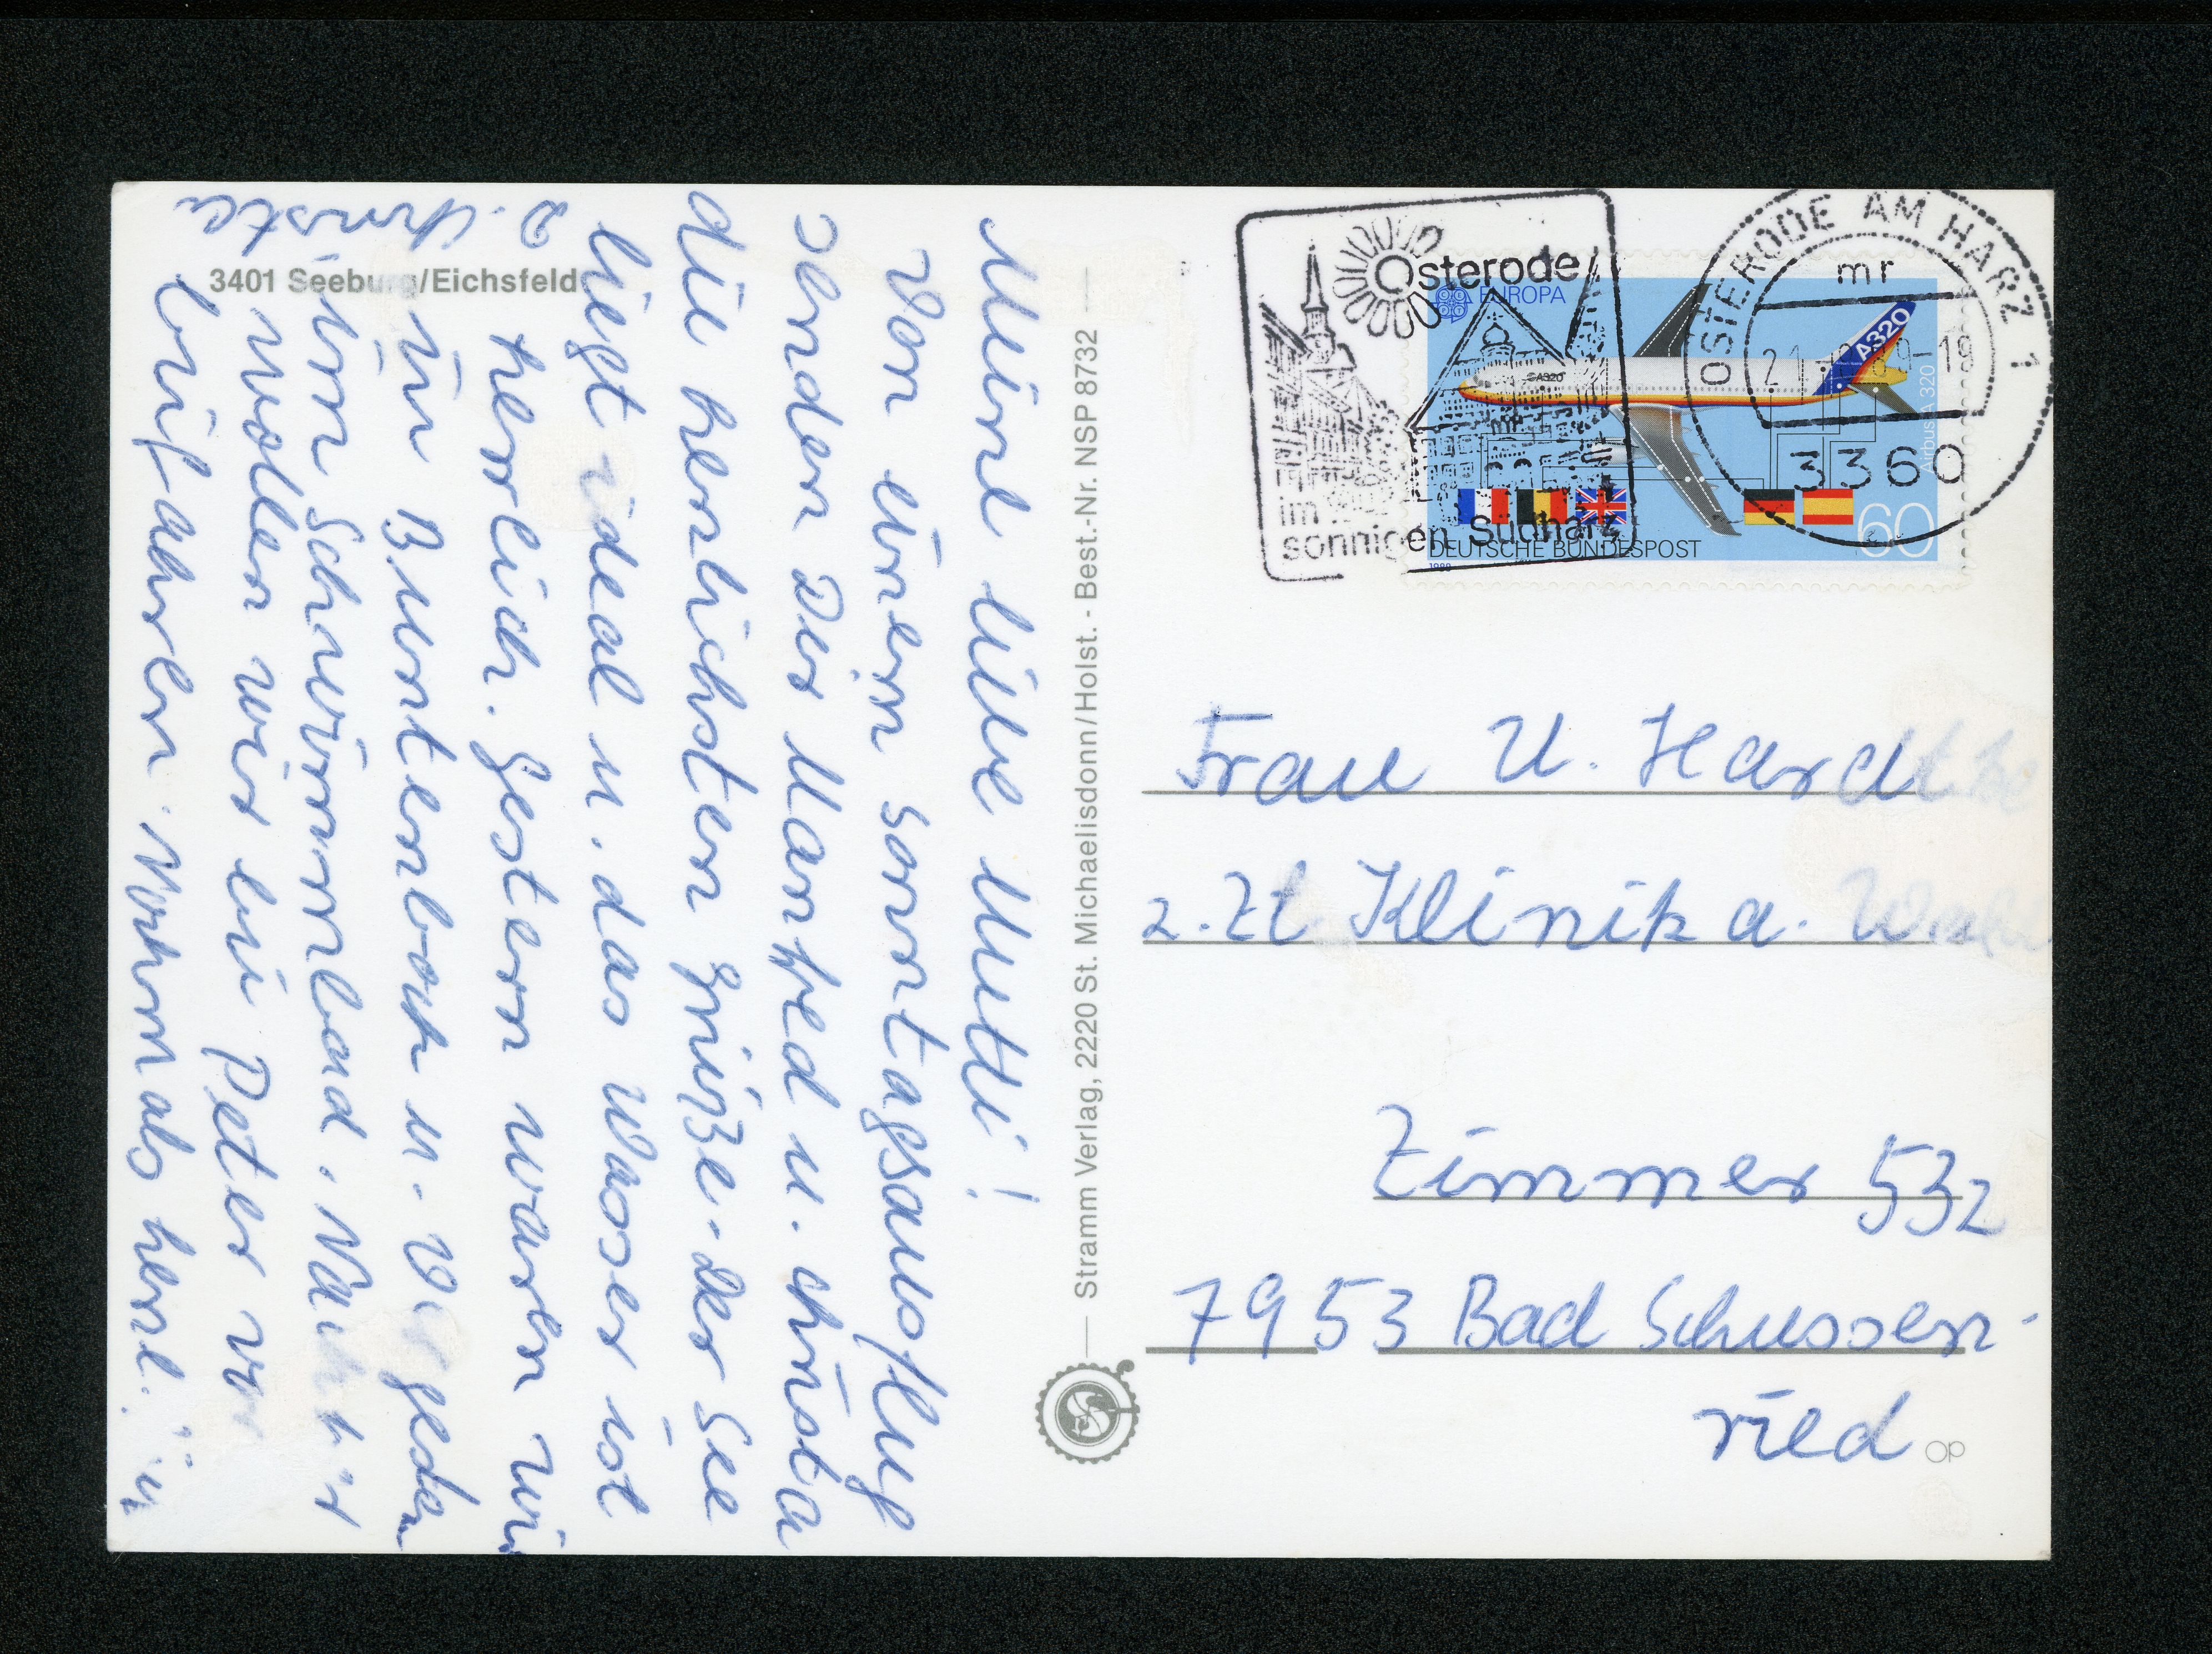 3401 Seeburg/Eichsfeld
Meine liebe Mutti!
Von einem Sonntagsausflug
senden Dir Manfred u. Christa
die herzlichsten Grüße. Der See
liegt ideal u. das Wasser ist
herrlich. Gestern waren wir
in Buntenbock u. 
im Schwimmbad. Nachher
wollen wir bei Peter vor
beifahren. Nochmals herzl.
D. Christa
Stramm Verlag, 2220 St. Michaelisdonn/Holst. - Best.-Nr. NSP 8732
Osterode
im
sonnigen Südharz
OSTERODE AM HARZ 1
mr
3360
EUROPA
A320
Airbus A 320
60
DEUTSCHE BUNDESPOST
Frau U. Hardtke
z. Zt. Klinik a.
Zimmer 532
7953 Bad Schussen-
ried